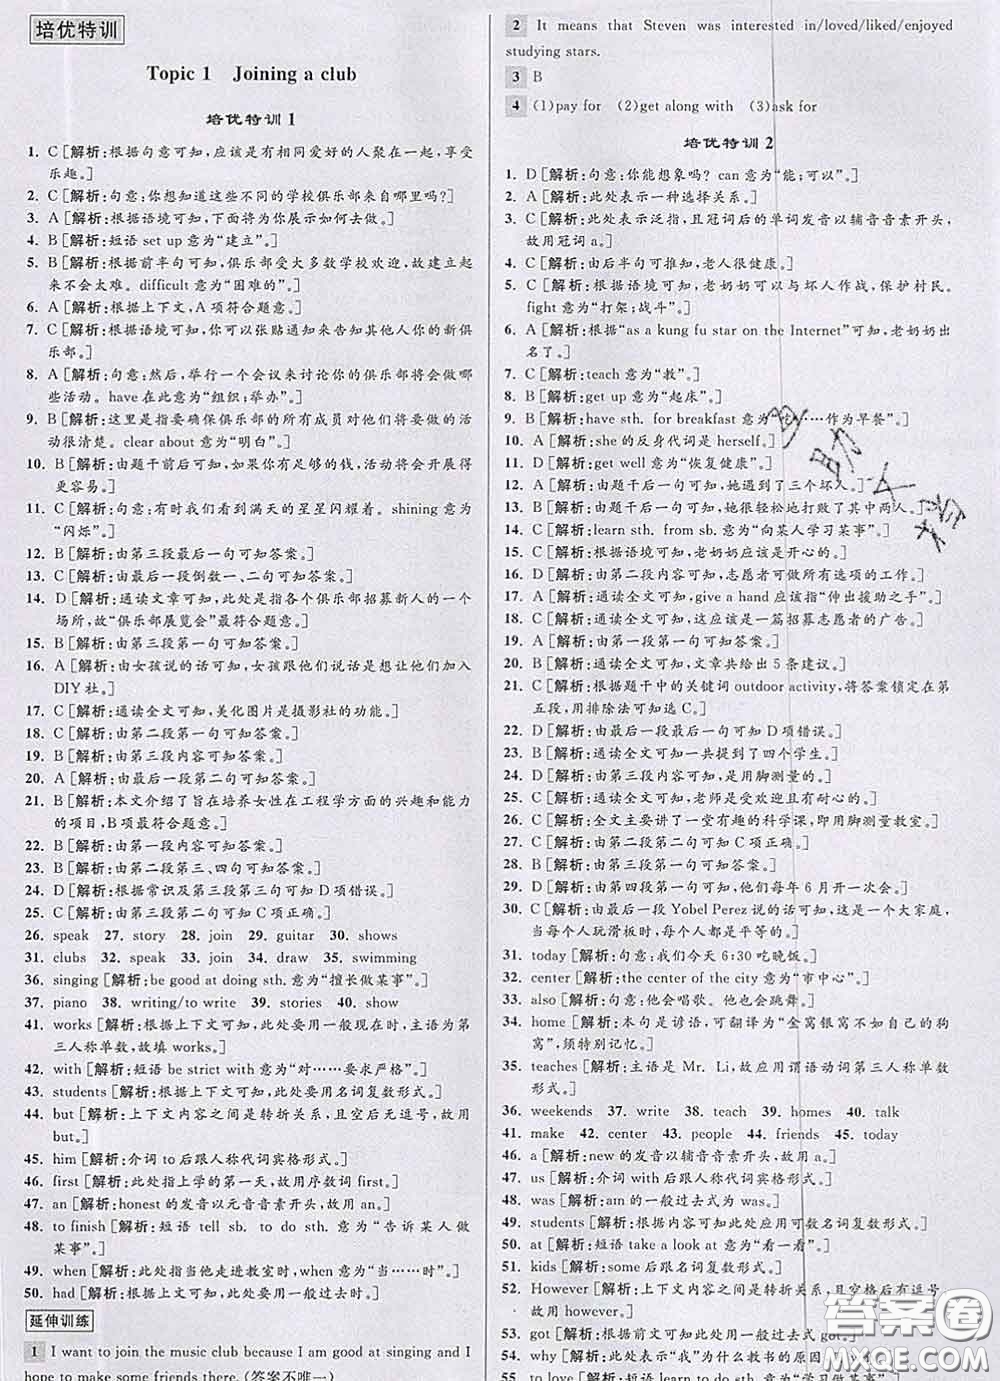 培优特训
Topic 1 Joining a club
培优特训 1
1. C [解析:根据句意可知,应该是有相同爱好的人聚在一起,享受
乐趣。]
2. C [解析:句意:你想知道这些不同的学校俱乐部来自哪里吗?]
3. A [解析:根据语境可知,下面将为你展示如何去做。]
4. B [解析:短语 set up 意为“建立”。]
5. B [解析:根据前半句可知,俱乐部受大多数学校欢迎,故建立起
来不会太难。difficult 意为“困难的”。]
6. A [解析:根据上下文,A 项符合题意。]
7. C [解析:根据语境可知,你可以张贴通知来告知其他人你的新俱
乐部。]
8. A [解析:句意:然后,举行一个会议来讨论你的俱乐部将会做哪
些活动。have 在此意为“组织;举办”。]
9. B [解析:这里是指要确保俱乐部的所有成员对他们将要做的活
动很清楚。clear about 意为“明白”。]
10. B [解析:由题干前后句可知,如果你有足够的钱,活动将会开展得
更容易。]
11. C [解析:句意:有时我们看到满天的星星闪耀着。shining 意为
“闪烁”。]
12. B [解析:由第三段最后一句可知答案。]
13. C [解析:由最后一段倒数一、二句可知答案。]
14. D [解析:通读文章可知,此处是指各个俱乐部招募新人的一个
场所,故“俱乐部展览会”最符合题意。]
15. B [解析:由第三段第一句可知答案。]
16. A [解析:由女孩说的话可知,女孩跟他们说话是想让他们加入
DIY 社。]
17. C [解析:通读全文可知,美化图片是摄影社的功能。]
18. C [解析:由第二段第一句可知答案。]
19. B [解析:由第三段内容可知答案。]
20. A [解析:由最后一段第二句可知答案。]
21. B [解析:本文介绍了旨在培养女性在工程学方面的兴趣和能力
的项目,B 项最符合题意。]
22. B [解析:由第一段内容可知答案。]
23. B [解析:由第二段第三、四句可知答案。]
24. D [解析:根据常识及第三段第三句可知 D 项错误。]
25. C [解析:由第三段第二句可知 C 项正确。]
26. speak 27. story 28. join 29. guitar 30. shows
31. clubs 32. speak 33. join 34. draw 35. swimming
36. singing [解析:be good at doing sth. 意为“擅长做某事”。]
37. piano 38. writing/to write 39. stories 40. show
41. works [解析:根据上下文可知,此处要用一般现在时,主语为第
三人称单数,故填 works。]
42. with [解析:短语 be strict with 意为“对……要求严格”。]
43. students [解析:根据上下文可知,此处要用名词复数形式。]
44. but [解析:上下文内容之间是转折关系,且空后无逗号,故用
but。]
45. him [解析:介词 to 后跟人称代词宾格形式。]
46. first [解析:此处指上学的第一天,故用序数词 first。]
47. an [解析:honest 的发音以元音音素开头,故用 an。]
48. to finish [解析:短语 tell sb. to do sth. 意为“告诉某人做
某事”。]
49. when [解析:此处指当他走进教室时,when 意为“当……时”。]
50. had [解析:此处要用一般过去时。]
延伸训练
1 I want to join the music club because I am good at singing and I
hope to make some friends there. (答案不唯一)
2 It means that Steven was interested in/loved/liked/enjoyed
studying stars.
3 B
4 (1)pay for (2)get along with (3)ask for
培优特训 2
1. D [解析:句意:你能想象吗? can 意为“能;可以”。]
2. A [解析:此处表示一种选择关系。]
3. C [解析:此处表示泛指,且冠词后的单词发音以辅音音素开头,
故用冠词 a。]
4. C [解析:由后半句可推知,老人很健康。]
5. C [解析:根据语境可知,老奶奶可以与坏人作战,保护村民。
fight 意为“打架;战斗”。]
6. A [解析:根据“as a kung fu star on the Internet”可知,老奶奶出
名了。]
7. C [解析:teach 意为“教”。]
8. B [解析:get up 意为“起床”。]
9. B [解析:have sth. for breakfast 意为“吃……作为早餐”。]
10. A [解析:she 的反身代词是 herself。]
11. D [解析:get well 意为“恢复健康”。]
12. A [解析:由题干后一句可知,她遇到了三个坏人。]
13. B [解析:由题干后一句可知,她很轻松地打败了其中两人。]
14. C [解析:learn sth. from sb. 意为“向某人学习某事”。]
15. C [解析:根据语境可知,老奶奶应该是开心的。]
16. D [解析:由第二段内容可知,志愿者可做所有选项的工作。]
17. A [解析:通读全文可知,give a hand 应该指“伸出援助之手”。]
18. C [解析:通读全文可知,这应该是一篇招募志愿者的广告。]
19. A [解析:由第一段第一句可知答案。]
20. B [解析:通读全文可知,文章共给出 5 条建议。]
21. C [解析:根据题干中的关键词 outdoor activity,将答案锁定在第
五段,用排除法可知选 C。]
22. D [解析:由最后一段最后一句可知 D 项错误。]
23. B [解析:通读全文可知一共提到了四个学生。]
24. D [解析:由第三段内容可知,是用脚测量的。]
25. C [解析:通读全文可知,老师是受欢迎且有耐心的。]
26. C [解析:全文主要讲了一堂有趣的科学课,即用脚测量教室。]
27. C [解析:由第二段第二句可知 C 项正确。]
28. B [解析:由第三段第一句可知答案。]
29. D [解析:由第四段第一句可知,他们每年 6 月开一次会。]
30. C [解析:由最后一段 Yobel Perez 说的话可知,这是一个大家庭,
当每个人玩滑板时,每个人都是平等的。]
31. today [解析:句意:我们今天 6:30 吃晚饭。]
32. center [解析:the center of the city 意为“市中心”。]
33. also [解析:句意:他会唱歌。他也会跳舞。]
34. home [解析:本句是谚语,可翻译为“金窝银窝不如自己的狗
窝”,须特别记忆。]
35. teaches [解析:主语是 Mr. Li,故应用谓语动词第三人称单数
形式。]
36. weekends 37. write 38. teach 39. homes 40. talk
41. make 42. center 43. people 44. friends 45. today
46. a [解析:new 的发音以辅音音素开头,故用 a。]
47. us [解析:介词 with 后跟人称代词宾格形式。]
48. was [解析:am 的一般过去式为 was。]
49. students [解析:根据内容可知此处应用可数名词复数形式。]
50. at [解析:短语 take a look at 意为“看一看”。]
51. kids [解析:some 后跟名词复数形式。]
52. However [解析:上下文内容之间是转折关系,且空后有逗号,
故用 however。]
53. got [解析:根据前文可知此处应用一般过去式。]
54. why [解析:此处表示“我”为什么教书的原因。]
55. to love [解析:短语 learn to do sth. 意为“学习做某事”。]
答案圈
MXQE.COM